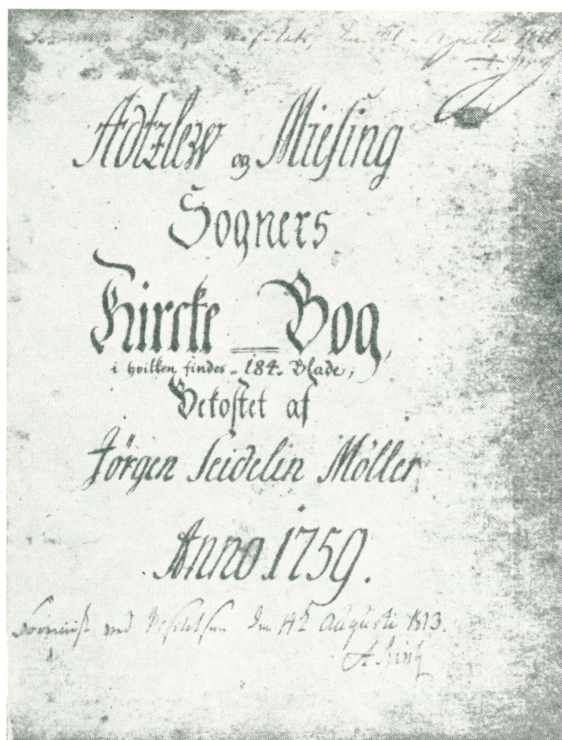 Adtzlew og Miesing
Sogners
Kircke = Bog,
i hvilken findes - 184 - Blade;
Bekostet af
Jörgen Seidelin Möller
Anno 1759.
den 19de Augusti 1813.